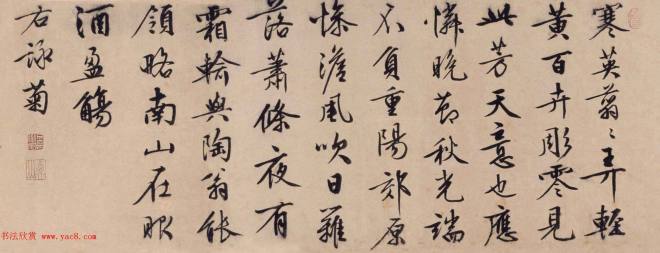 寒英翦〻弄輕
黄百卉彫零見
此芳天意也應
憐晚節秋光端
不負重陽郊原
慘澹風吹日籬
落蕭條夜有
霜輸與陶翁能
領略南山在眼
酒盈觴
右詠菊
书法欣赏
www.yac8.com